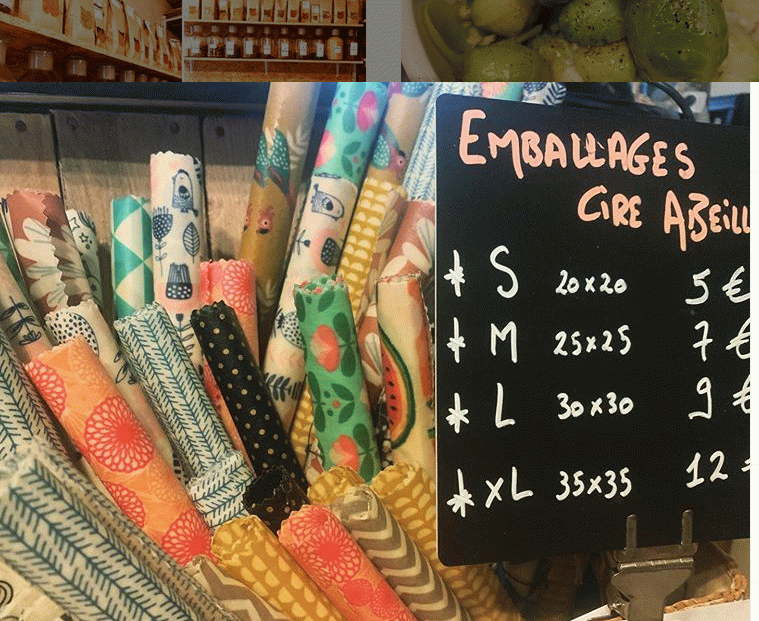 EMBALLAGES
CIRE ABEILL
* S 20x20 5 €
* M 25x25 7 €
* L 30x30 9 €
* XL 35x35 12